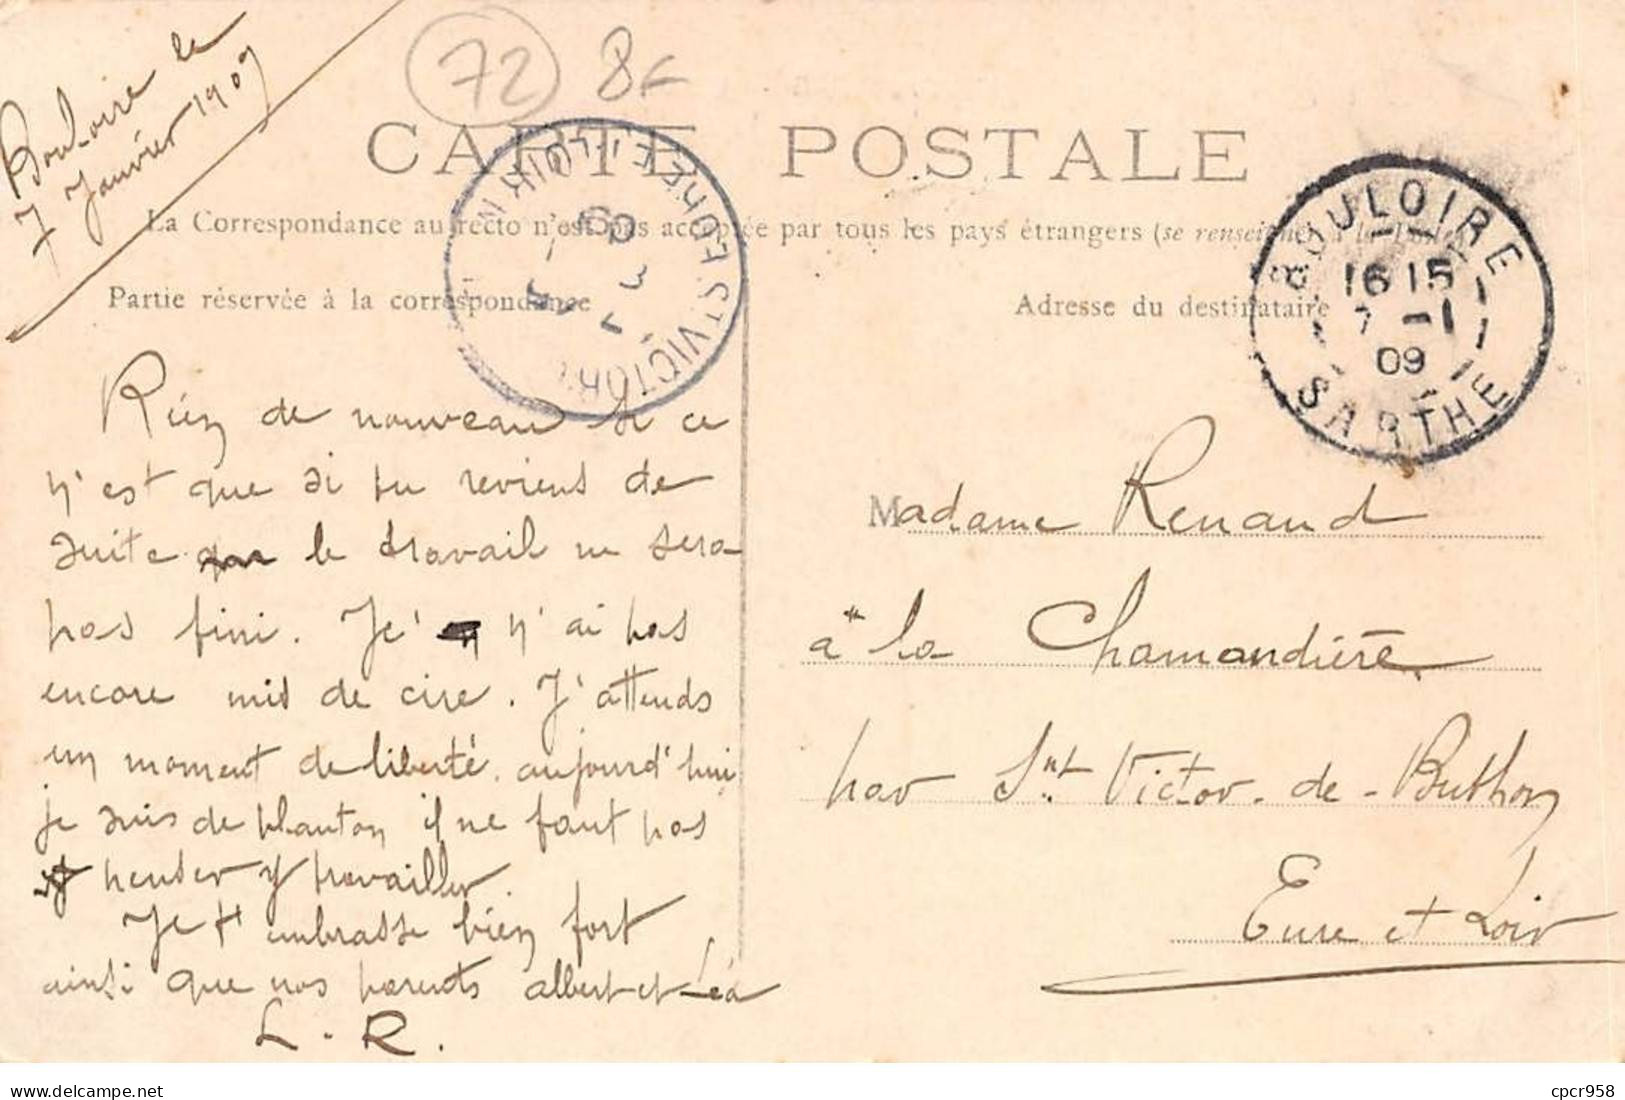 Bouloire le
7 Janvier 1909
72 8F
CARTE POSTALE
La Correspondance au recto n'est pas acceptée par tous les pays étrangers (se renseigner à la Poste)
Partie réservée à la correspondance
Adresse du destinataire
BOULOIRE
16 15
7 -1
09
SARTHE
St VICTOR
Rien de nouveau si ce
n'est que si tu reviens de
suite le travail ne sera
pas fini. Je n'ai pas
encore mis de cire. J'attends
un moment de liberté. aujourd'hui
je suis de planton il ne faut pas
penser y travailler.
Je t'embrasse bien fort
ainsi que nos parents albert et Léa
L. R.
Madame Renaud
à la Chamandière
par St Victor-de-Buthon
Eure et Loir
cpcr958